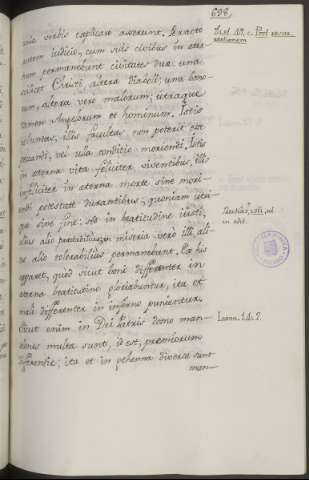 698.
suis verbis explicare asserunt. Peracto
autem iudicio, cum suis civibus in aeter-
num permanebunt civitates duae, una
scilicet Christi, altera Diaboli; una bono-
rum, altera vero malorum; utraque
tamen Angelorum et hominum. Istis
voluntas, illis facultas non poterit esse
peccandi, vel ulla conditio moriendi. Istis
in aeterna vita feliciter viventibus, illis
infeliciter in aeterna morte sine mori-
endi potestate durantibus, quoniam utri-
que sine fine: sed in beatitudine isti,
alius alio praestabilius, in miseria vero illi, ali-
us alio tolerabilius permanebunt. Ex his
apparet, quod sicut boni differenter in
aeterna beatitudine gloriabuntur, ita et
mali differenter in inferno punientur.
Sicut enim in Dei Patris domo man-
siones multae sunt, id est, praemiorum
differentiae; ita et in gehenna diversae sunt
man-
in edit.
Ioann. 14. 2.